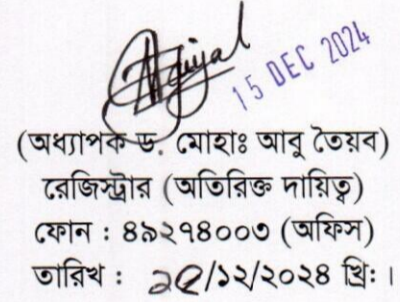 15 DEC 2024
(অধ্যাপক ড. মোহাঃ আবু তৈয়ব)
রেজিস্ট্রার (অতিরিক্ত দায়িত্ব)
ফোন : ৪৯২৭৪০০৩ (অফিস)
তারিখ : /১২/২০২৪ খ্রি: ।